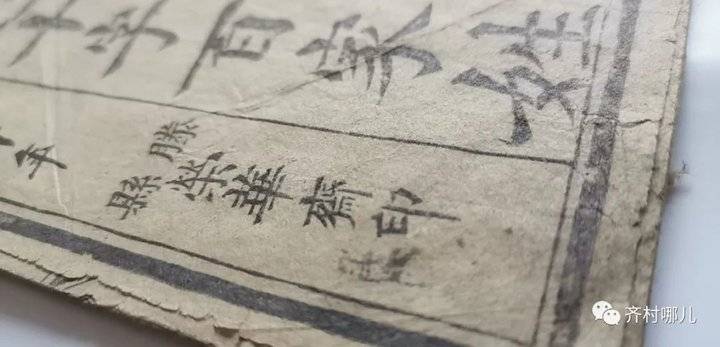 字百家姓
年
滕縣
榮華齋印
齐村哪儿